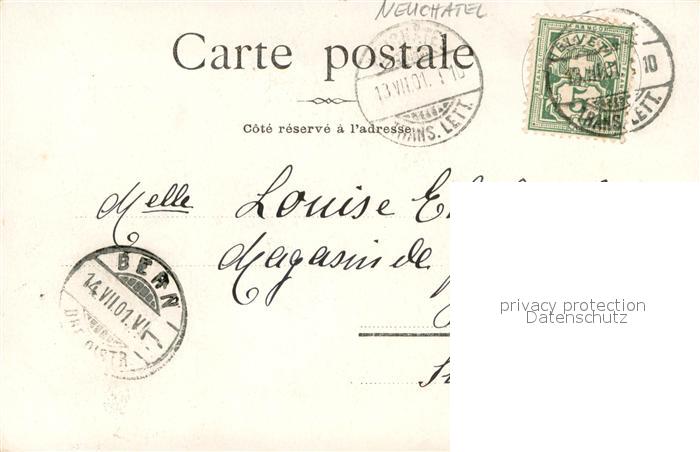 NEUCHATEL
Carte postale
13 VII 01. 10
TRANS. LETT.
HELVETIA
5
13 VII 01. 10
TRANS. LETT.
Côté réservé à l'adresse
Melle Louise
Magasin de
BERN
14.VII.01.VI
privacy protection
Datenschutz